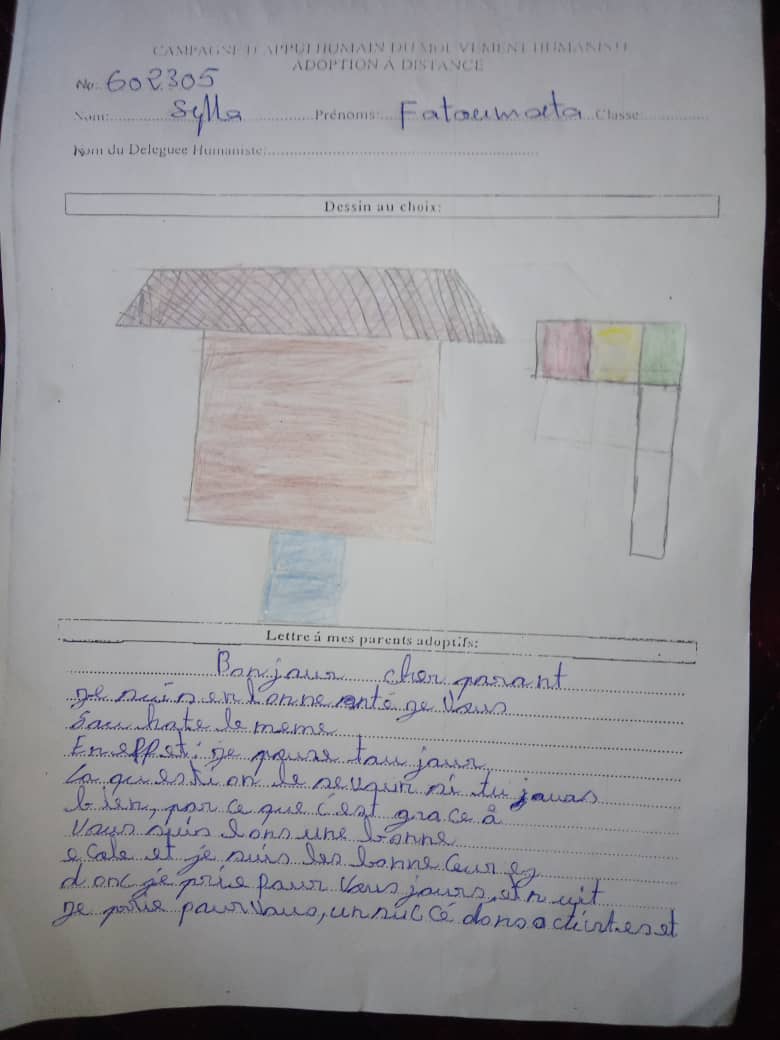 CAMPAGNE D'APPUI HUMAIN DU MOUVEMENT HUMANISTE
ADOPTION A DISTANCE
No: 602305
Nom: Sylla Prénoms: Fatoumata Classe:
Nom du Deleguee Humaniste:
Dessin au choix:
Lettre á mes parents adoptifs:
Bonjour cher parant
je suis en bonne enté je vous
Souhate le meme
En effet; je pause toujour
la question de si tu
bien, par ce que c'est grace à
vous suis dans une bonne
ecole et je suis les bonne
donc je prie pour vous jours, et nuit
je prie pour vous, un succé dans et